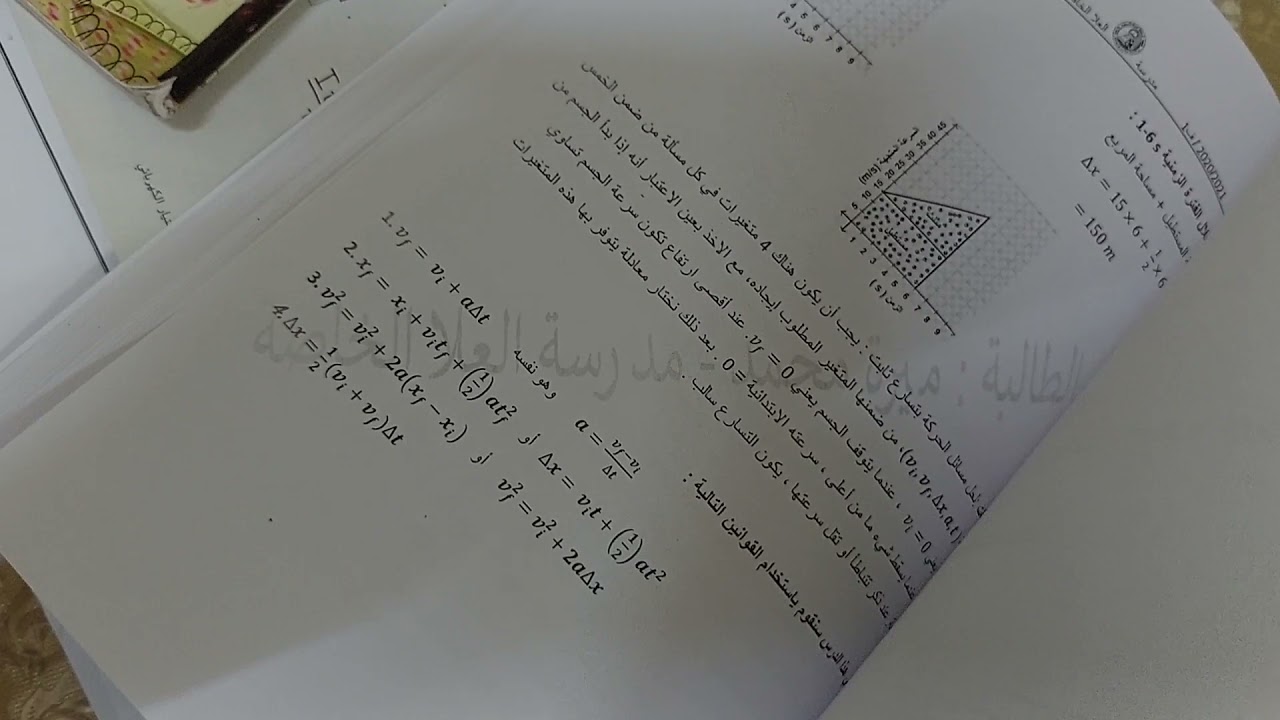 مدرسة العلا الخا
2020/2021 / ف1
خلال الفترة الزمنية 1-6 s :
المستطيل + مساحة المربع
Δx = 15 × 6 + 1/2 × 6
= 150 m
4 5 6 7 8 9
الزمن (s)
السرعة المتجهة (m/s)
5 10 15 20 25 30 35 40 45
1 2 3 4 5 6 7 8 9
الزمن (s)
مسائل الحركة بتسارع ثابت : يجب أن يكون هناك 4 متغيرات في كل مسألة من ضمن الخمس
(vᵢ, v_f, Δx, a, t)، من ضمنها المتغير المطلوب إيجاده، مع الاخذ بعين الاعتبار أنه إذا بدأ الجسم من
vᵢ = 0 ، عندما يتوقف الجسم يعني v_f = 0. عند أقصى ارتفاع تكون سرعة الجسم تساوي
شيء ما من أعلى ، سرعته الابتدائية = 0 . بعد ذلك نختار معادلة يتوفر بها هذه المتغيرات
تباطأ أو تقل سرعتها ، يكون التسارع سالب .
الدرس سنقوم باستخدام القوانين التالية :
1. v_f = vᵢ + aΔt وهو نفسه a = (v_f − vᵢ)/Δt
2. x_f = xᵢ + vᵢt_f + (1/2)at_f² أو Δx = vᵢt + (1/2)at²
3. v_f² = vᵢ² + 2a(x_f − xᵢ) أو v_f² = vᵢ² + 2aΔx
4. Δx = 1/2 (vᵢ + v_f)Δt
الطالبة : ميرة محمد - مدرسة العلا الخاصة